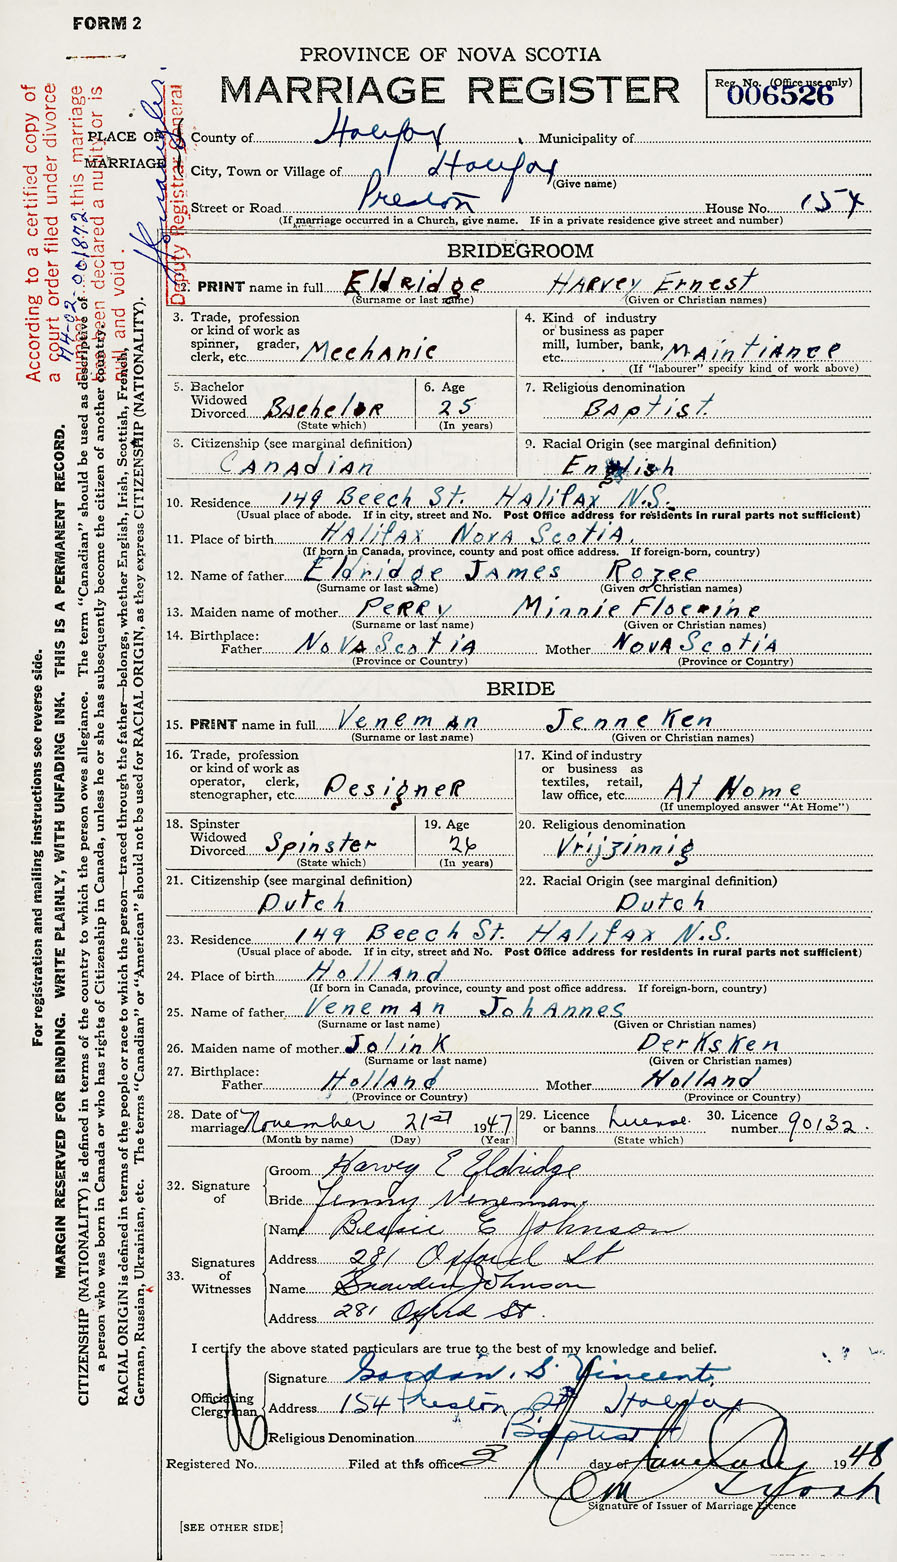 FORM 2
PROVINCE OF NOVA SCOTIA
MARRIAGE REGISTER
Reg. No. (Office use only)
006526
PLACE OF MARRIAGE
County of Halifax Municipality of
City, Town or Village of Halifax
(Give name)
Street or Road Preston House No. 154
(If marriage occurred in a Church, give name. If in a private residence give street and number)
BRIDEGROOM
2. PRINT name in full Eldridge Harvey Ernest
(Surname or last name) (Given or Christian names)
3. Trade, profession or kind of work as spinner, grader, clerk, etc. Mechanic
4. Kind of industry or business as paper mill, lumber, bank, etc. Maintiance
(If "labourer" specify kind of work above)
5. Bachelor Widowed Divorced Bachelor
(State which)
6. Age 25
(In years)
7. Religious denomination
Baptist.
8. Citizenship (see marginal definition)
Canadian
9. Racial Origin (see marginal definition)
English
10. Residence 149 Beech St. Halifax N.S.
(Usual place of abode. If in city, street and No. Post Office address for residents in rural parts not sufficient)
11. Place of birth Halifax Nova Scotia.
(If born in Canada, province, county and post office address. If foreign-born, country)
12. Name of father Eldridge James Rozee
(Surname or last name) (Given or Christian names)
13. Maiden name of mother Perry Minnie Floerine
(Surname or last name) (Given or Christian names)
14. Birthplace:
Father Nova Scotia Mother Nova Scotia
(Province or Country) (Province or Country)
BRIDE
15. PRINT name in full Veneman Jenneken
(Surname or last name) (Given or Christian names)
16. Trade, profession or kind of work as operator, clerk, stenographer, etc. Designer
17. Kind of industry or business as textiles, retail, law office, etc. At Home
(If unemployed answer "At Home")
18. Spinster Widowed Divorced Spinster
(State which)
19. Age 26
(In years)
20. Religious denomination
Vrijzinnig
21. Citizenship (see marginal definition)
Dutch
22. Racial Origin (see marginal definition)
Dutch
23. Residence 149 Beech St. Halifax N.S.
(Usual place of abode. If in city, street and No. Post Office address for residents in rural parts not sufficient)
24. Place of birth Holland
(If born in Canada, province, county and post office address. If foreign-born, country)
25. Name of father Veneman Johannes
(Surname or last name) (Given or Christian names)
26. Maiden name of mother Jolink Derksken
(Surname or last name) (Given or Christian names)
27. Birthplace:
Father Holland Mother Holland
(Province or Country) (Province or Country)
28. Date of marriage November 21st 1947
(Month by name) (Day) (Year)
29. Licence or banns license.
(State which)
30. Licence number 90132.
32. Signature of
Groom Harvey E Eldridge
Bride Jenny Veneman.
33. Signatures of Witnesses
Name Bessie E Johnson
Address 281 Oxford St
Name Snowden Johnson
Address 281 Oxford St.
I certify the above stated particulars are true to the best of my knowledge and belief.
Officiating Clergyman
Signature Gordon. S. Vincent.
Address 154 Preston St Halifax
Religious Denomination Baptist
Registered No. Filed at this office 2 day of January 1948
Signature of Issuer of Marriage Licence
[SEE OTHER SIDE]
According to a certified copy of
a court order filed under divorce
44-02-001872, this marriage
has been declared a nullity or is
null and void.
Deputy Registrar General
For registration and mailing instructions see reverse side.
MARGIN RESERVED FOR BINDING. WRITE PLAINLY, WITH UNFADING INK. THIS IS A PERMANENT RECORD.
CITIZENSHIP (NATIONALITY) is defined in terms of the country to which the person owes allegiance. The term "Canadian" should be used as descriptive of
a person who was born in Canada or who has rights of Citizenship in Canada, unless he or she has subsequently become the citizen of another country.
RACIAL ORIGIN is defined in terms of the people or race to which the person—traced through the father—belongs, whether English, Irish, Scottish, French,
German, Russian, Ukrainian, etc. The terms "Canadian" or "American" should not be used for RACIAL ORIGIN, as they express CITIZENSHIP (NATIONALITY).